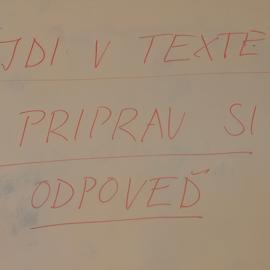 JDI V TEXTE
PRIPRAV SI
ODPOVEĎ